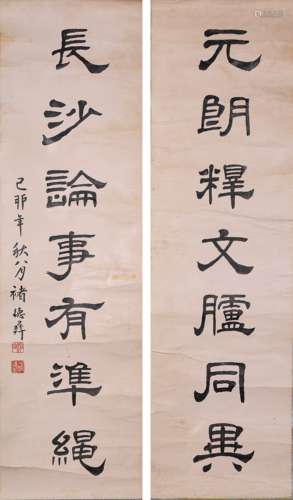 元朗釋文臚同異
長沙論事有準繩
己卯年秋八月褚德彝